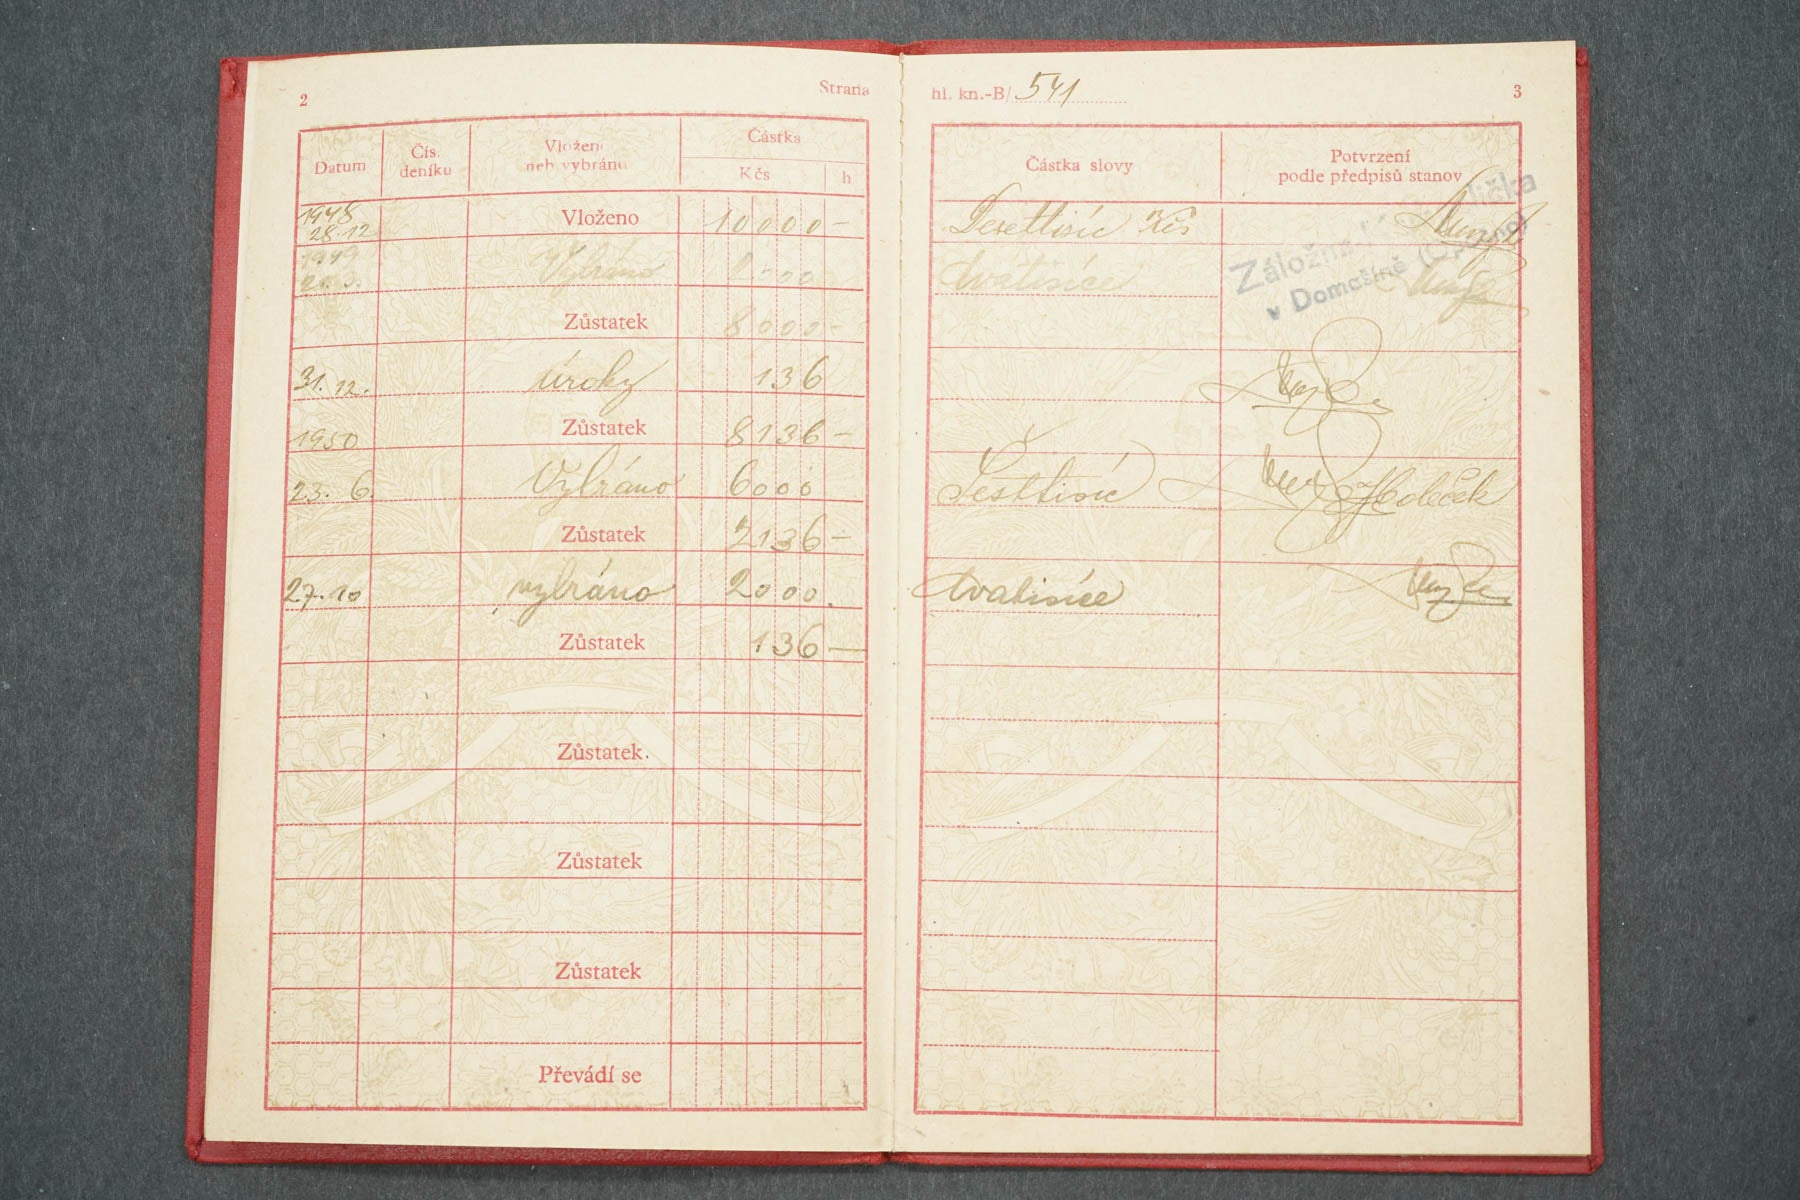 2
Strana
Datum
Čís. deníku
Vloženo neb vybráno
Částka
Kčs
h
1948
28.12
Vloženo
10000-
1949
Vybráno
Zůstatek
8000-
31.12.
úroky
136
1950
Zůstatek
8136-
23. 6.
Vybráno
6000
Zůstatek
2136-
27.10
vybráno
2000.
Zůstatek
136-
Zůstatek.
Zůstatek
Zůstatek
Převádí se
hl. kn.-B/ 541
3
Částka slovy
Potvrzení
podle předpisů stanov
Desettisíc Kčs
Záložna
v Domašíně
dvatisíce
Šesttisíc
Holeček
dvatisíce